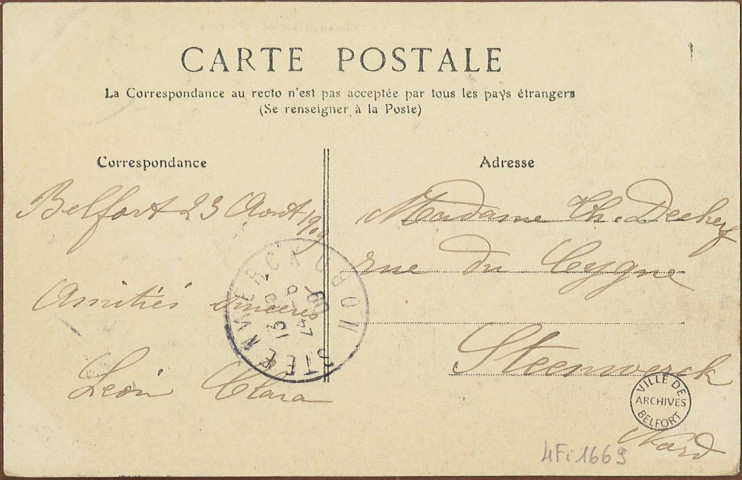 CARTE POSTALE
La Correspondance au recto n'est pas acceptée par tous les pays étrangers
(Se renseigner à la Poste)
Correspondance
Belfort 23 Aout
Amitiés sincères
Léon Clara
Adresse
Madame Th. Deckef
rue du Cygne
Steenwerck
Nord
STEENWERCK NORD
VILLE DE
ARCHIVES
BELFORT
4Fi1669